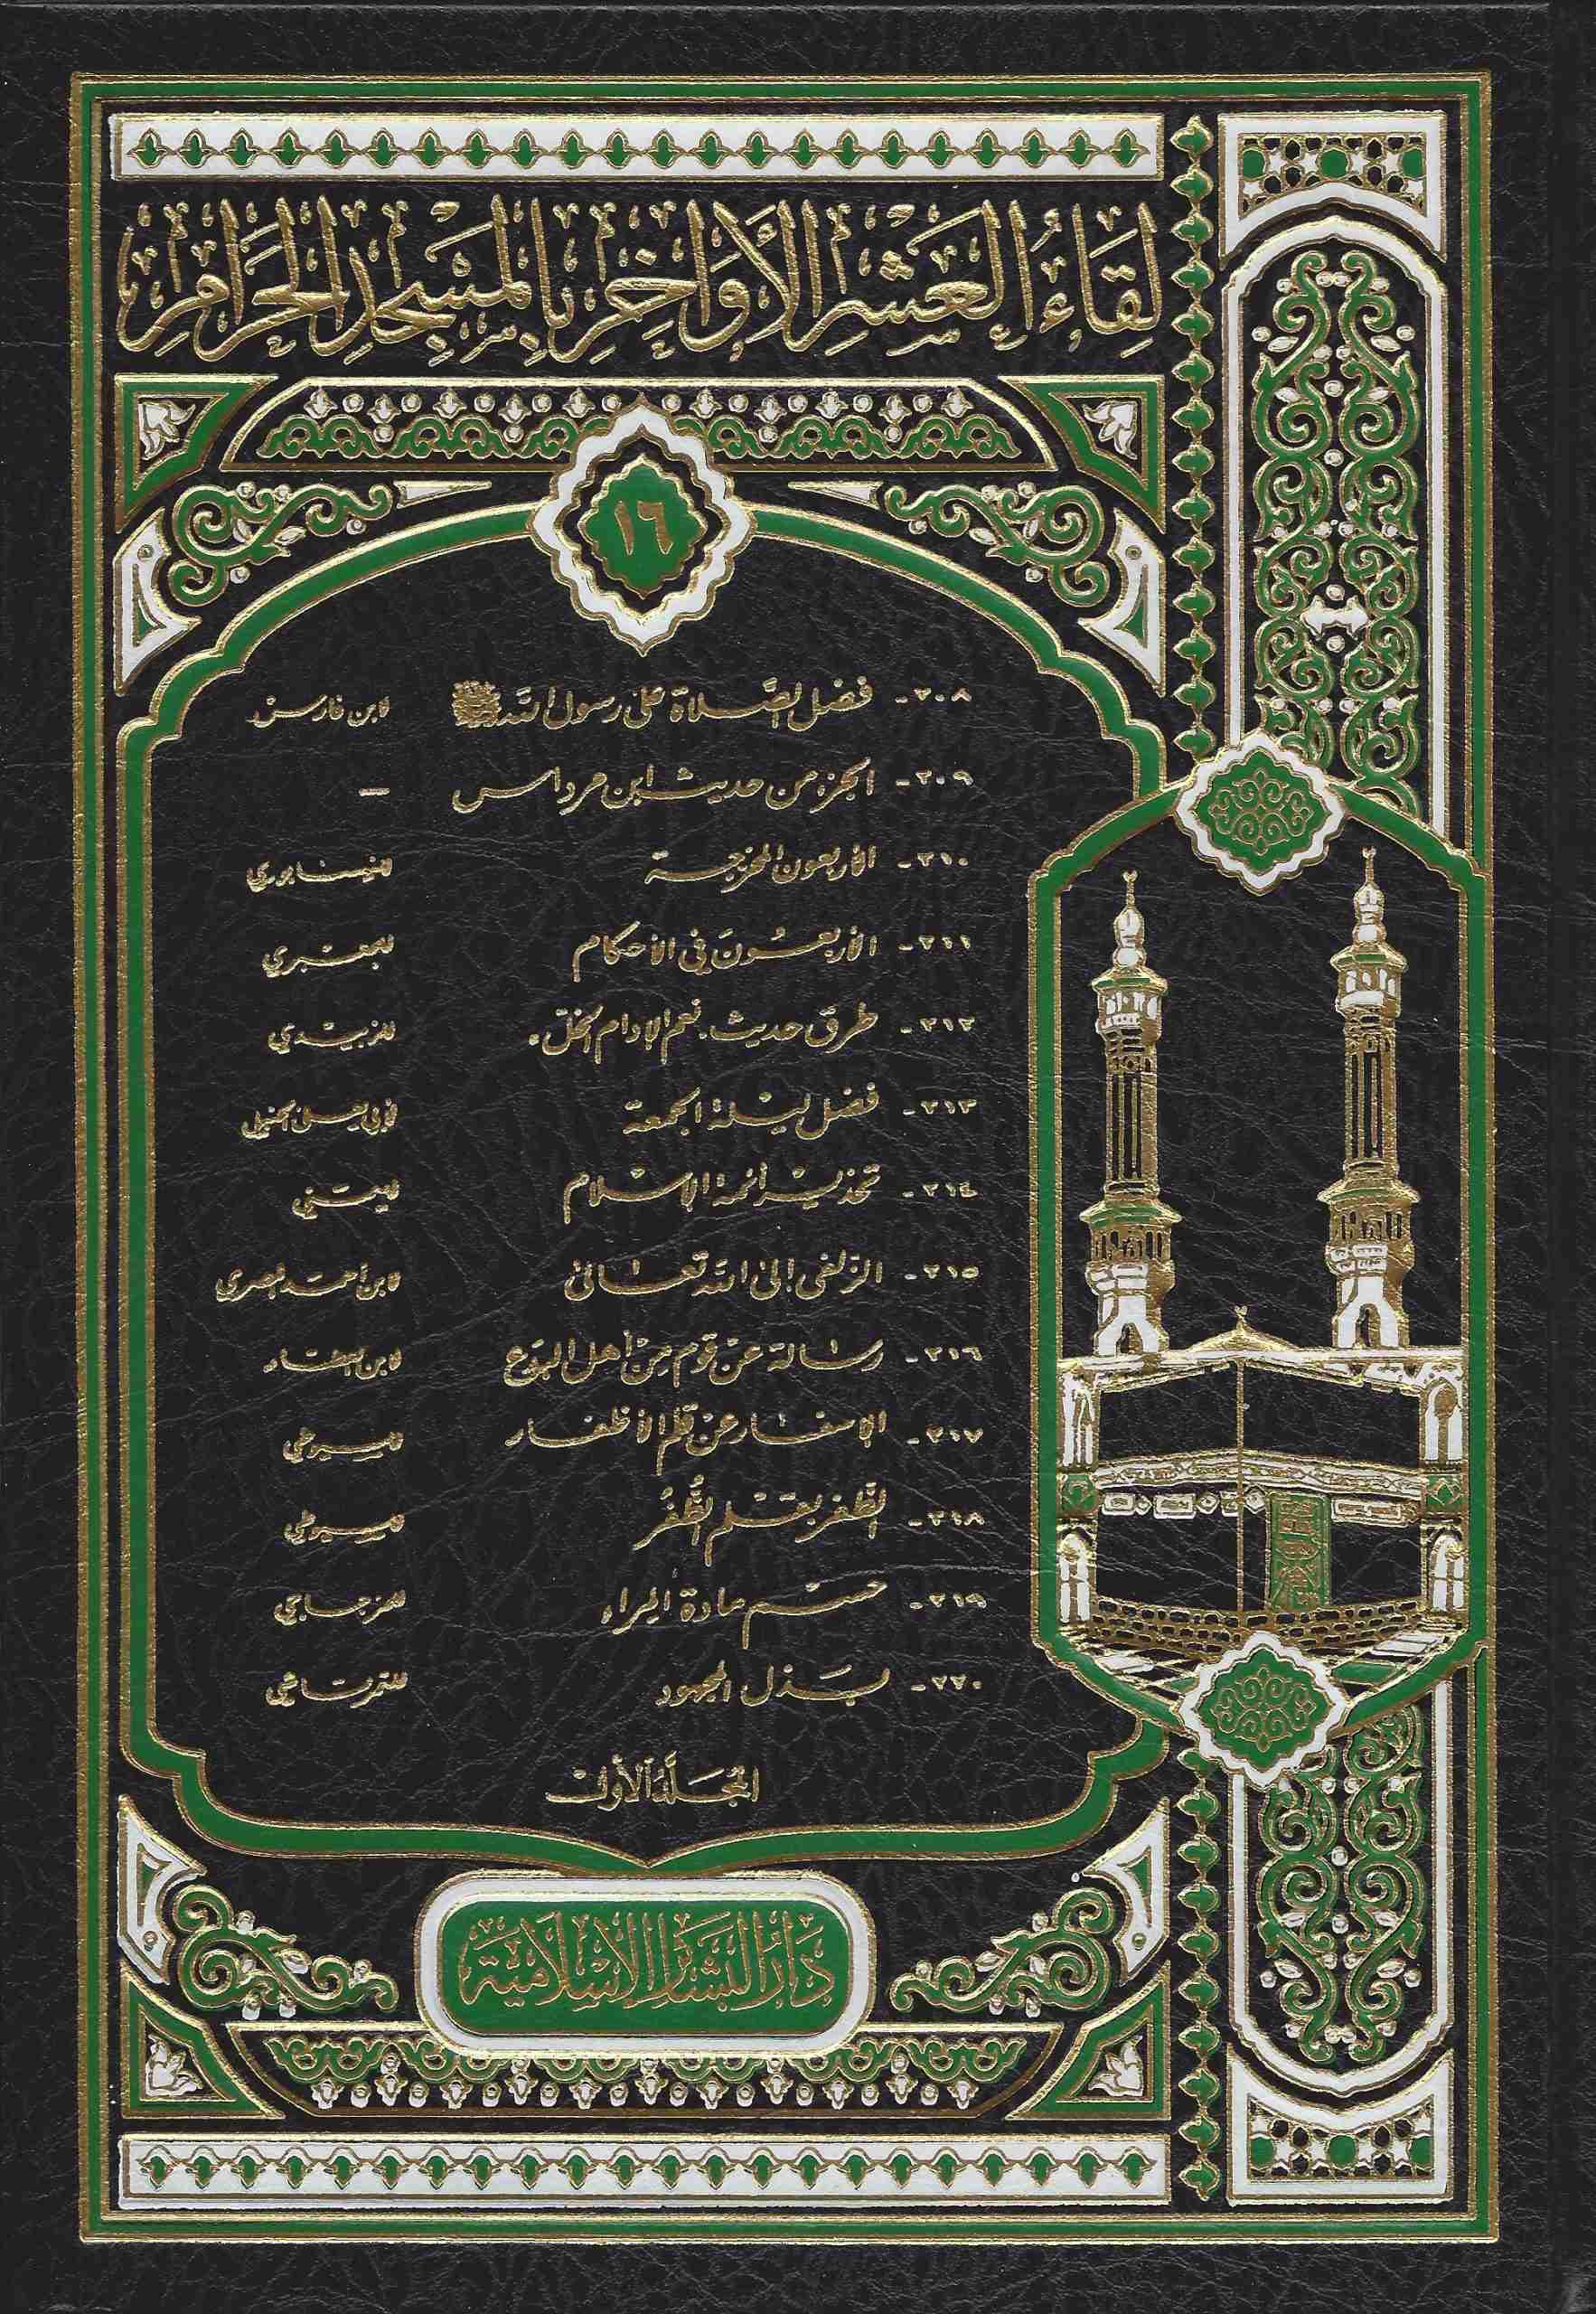 لِقَاءُ العَشْرِ الأَوَاخِرِ بِالمَسْجِدِ الحَرَامِ
١٦
٢٠٨ - فضل الصَّلاة على رسول الله ﷺ لابن فارس
٢٠٩ - الجزء من حديث ابن مرداس —
٢١٠ - الأربعون المخرجة للنيسابوري
٢١١ - الأربعون في الأحكام للجعبري
٢١٢ - طرق حديث: نعم الإدام الخلّ. للزبيدي
٢١٣ - فضل ليلة الجمعة لأبي يعلى الحنبلي
٢١٤ - تحذير أئمة الإسلام لليمني
٢١٥ - الزلفى إلى الله تعالى لابن أحمد المصري
٢١٦ - رسالة عن قوم من أهل البدع لابن العطار
٢١٧ - الإسفار عن قلم الأظفار للسيوطي
٢١٨ - الظَّفر بقلم الظُّفُر للسيوطي
٢١٩ - حسم مادة المراء للمزجاجي
٢٢٠ - بذل المجهود للتمرتاشي
المجلد الأول
دار البشائر الإسلامية